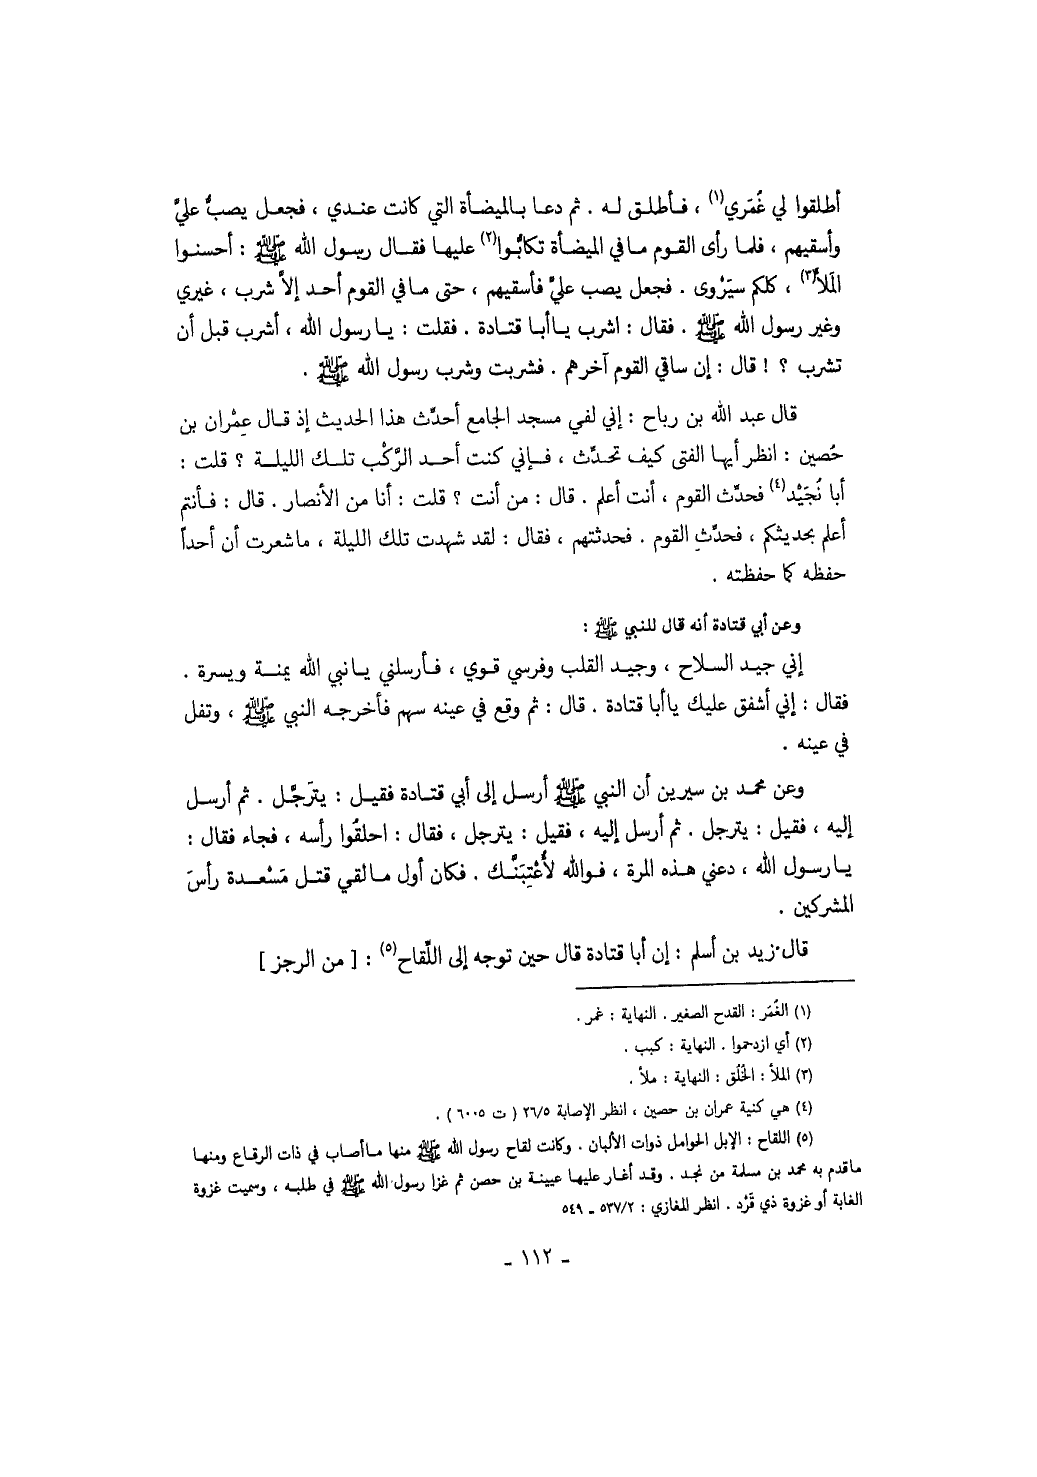 أطلقوا لي غُمَري(١) ، فأطلق له . ثم دعا بالميضأة التي كانت عندي ، فجعل يصبُّ عليَّ
وأسقيهم ، فلما رأى القوم مافي الميضأة تكابُّوا(٢) عليها فقال رسول الله ﷺ : أحسنوا
المَلأ(٣) ، كلكم سيَرْوى . فجعل يصب عليَّ فأسقيهم ، حتى مافي القوم أحد إلاَّ شرب ، غيري
وغير رسول الله ﷺ . فقال : اشرب ياأبا قتادة . فقلت : يارسول الله ، أشرب قبل أن
تشرب ؟ ! قال : إن ساقي القوم آخرهم . فشربت وشرب رسول الله ﷺ .
قال عبد الله بن رباح : إني لفي مسجد الجامع أحدّث هذا الحديث إذ قال عِمْران بن
حُصين : انظر أيها الفتى كيف تحدّث ، فإني كنت أحد الرَّكْب تلك الليلة ؟ قلت :
أبا نُجَيْد(٤) فحدّث القوم ، أنت أعلم . قال : من أنت ؟ قلت : أنا من الأنصار . قال : فأنتم
أعلم بحديثكم ، فحدِّث القوم . فحدثتهم ، فقال : لقد شهدت تلك الليلة ، ماشعرت أن أحداً
حفظه كما حفظته .
وعن أبي قتادة أنه قال للنبي ﷺ :
إني جيد السلاح ، وجيد القلب وفرسي قوي ، فأرسلني يانبي الله يمنة ويسرة .
فقال : إني أشفق عليك ياأبا قتادة . قال : ثم وقع في عينه سهم فأخرجه النبي ﷺ ، وتفل
في عينه .
وعن محمد بن سيرين أن النبي ﷺ أرسل إلى أبي قتادة فقيل : يترَجَّل . ثم أرسل
إليه ، فقيل : يترجل . ثم أرسل إليه ، فقيل : يترجل ، فقال : احلقُوا رأسه ، فجاء فقال :
يارسول الله ، دعني هذه المرة ، فوالله لأُعْتِبَنَّك . فكان أول مالقي قتل مَسْعدة رأسَ
المشركين .
قال زيد بن أسلم : إن أبا قتادة قال حين توجه إلى اللِّقاح(٥) : [ من الرجز ]
(١) الغُمَر : القدح الصغير . النهاية : غمر .
(٢) أي ازدحموا . النهاية : كبب .
(٣) الملأ : الخُلُق : النهاية : ملأ .
(٤) هي كنية عمران بن حصين ، انظر الإصابة ٢٦/٥ ( ت ٦٠٠٥ ) .
(٥) اللقاح : الإبل الحوامل ذوات الألبان . وكانت لقاح رسول الله ﷺ منها ماأصاب في ذات الرقاع ومنها
ماقدم به محمد بن مسلمة من نجد . وقد أغار عليها عيينة بن حصن ثم غزا رسول الله ﷺ في طلبه ، وسميت غزوة
الغابة أو غزوة ذي قَرْد . انظر المغازي : ٥٣٧/٢ ـ ٥٤٩
ـ ١١٢ ـ